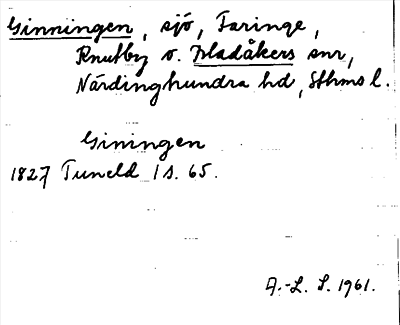 Ginningen, sjö, Faringe,
Knutby o. Bladåkers snr,
Närdinghundra hd, Sthms l.
Giningen
1827 Tuneld I s. 65.
A.-L. S. 1961.